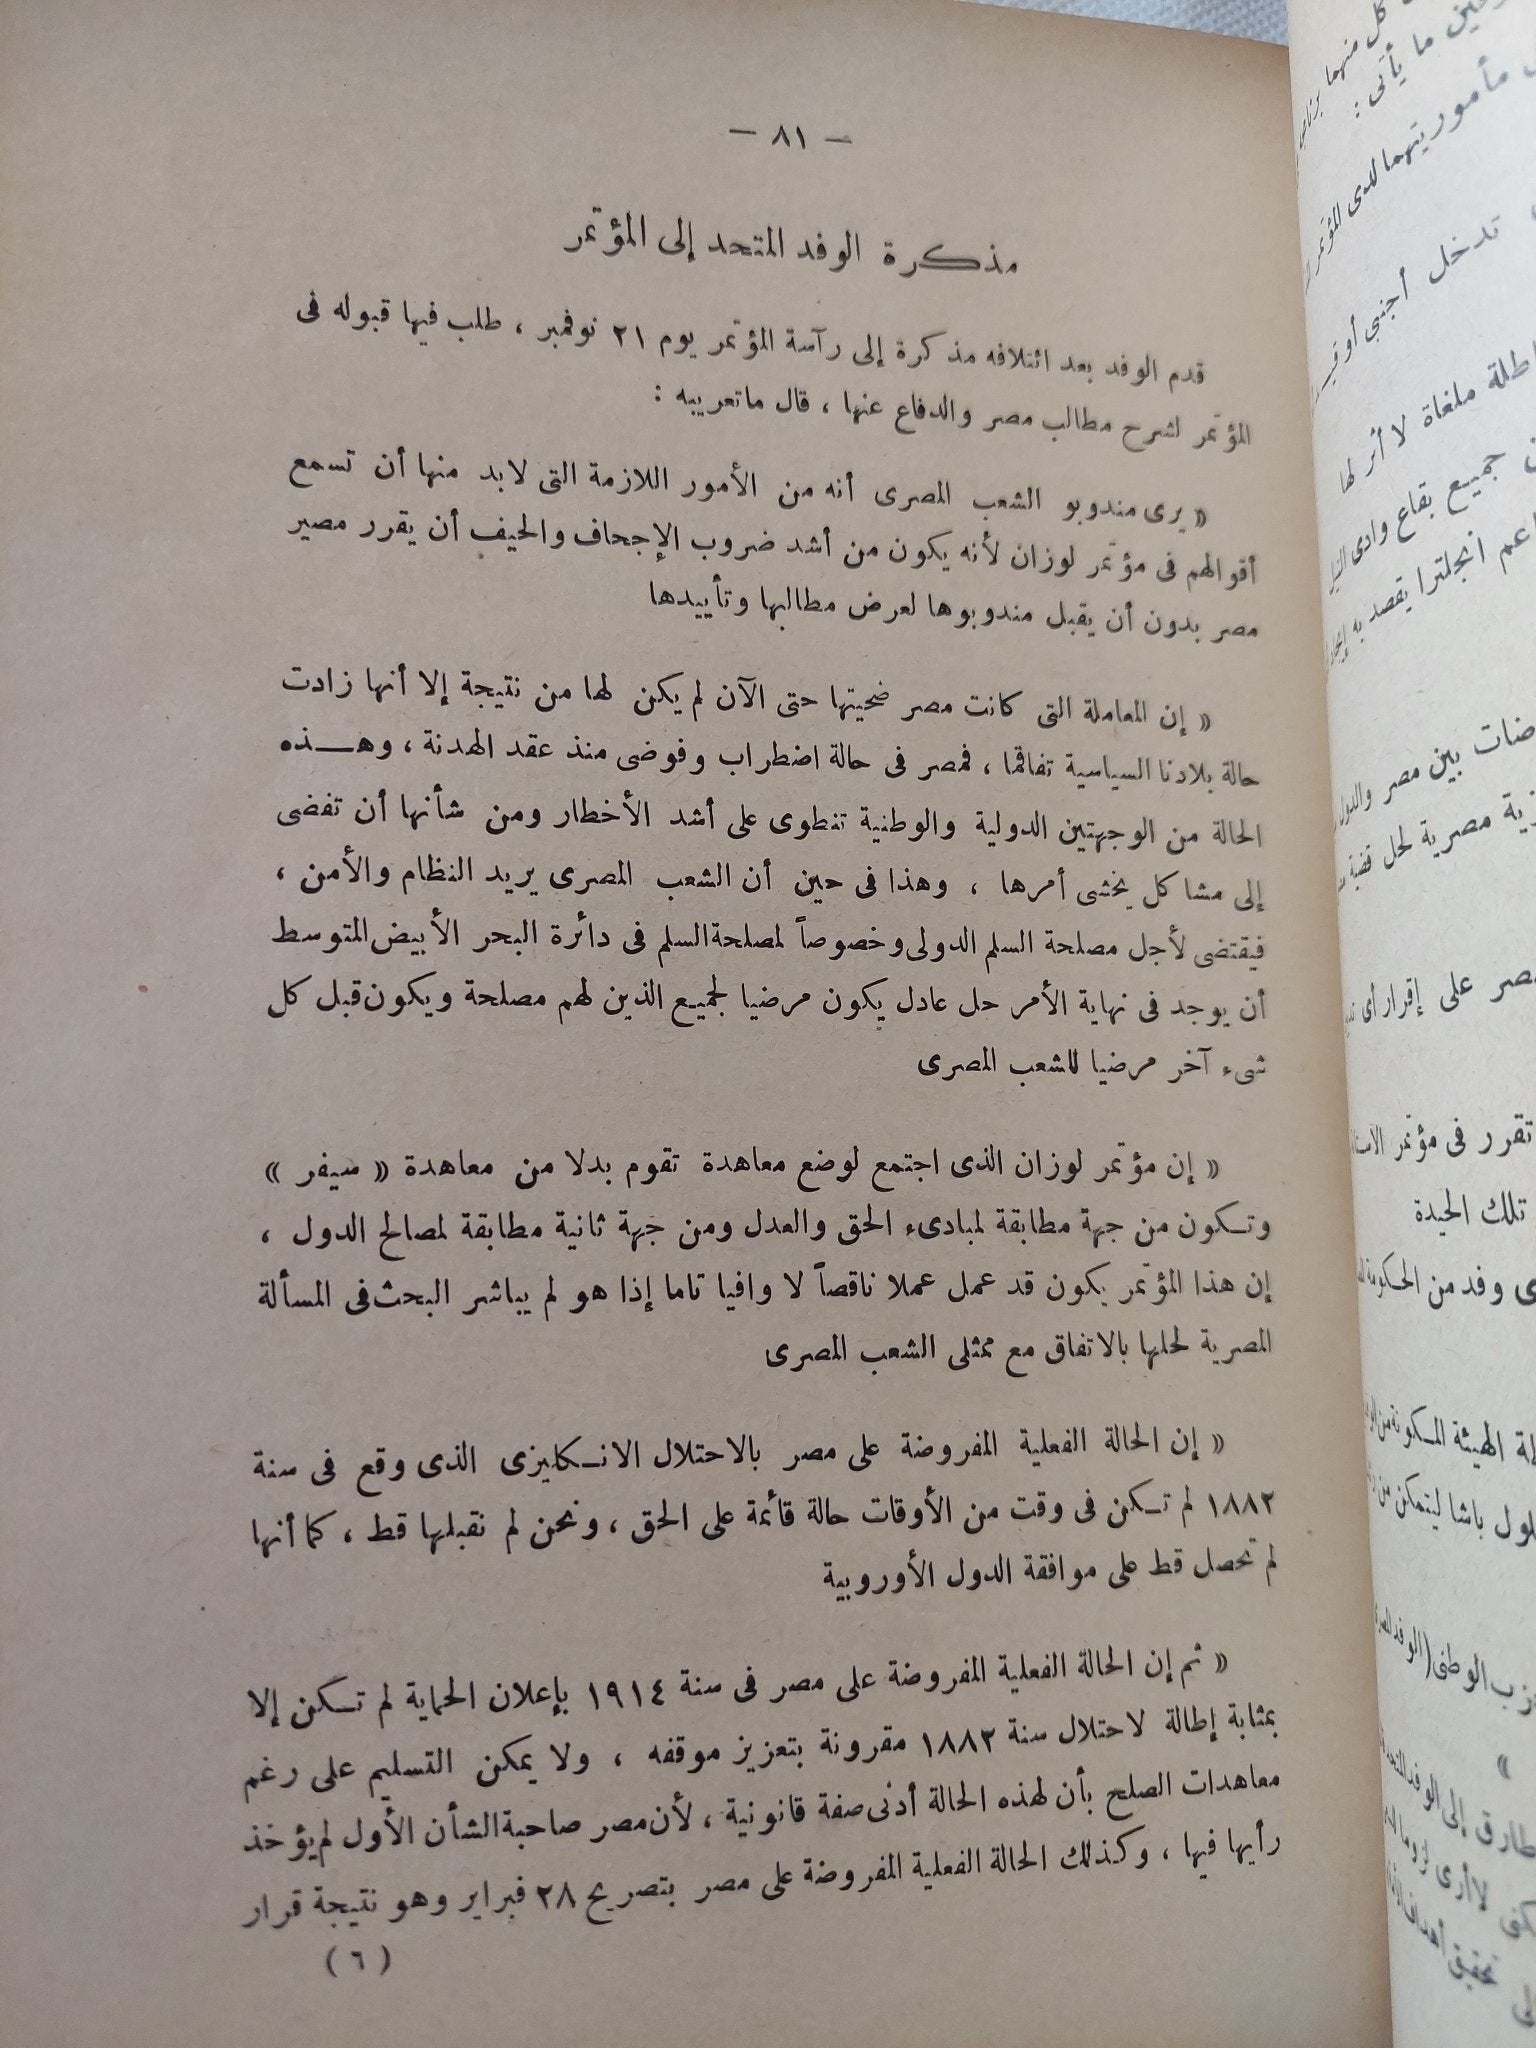 — ٨١ —
مذكرة الوفد المتحد إلى المؤتمر
قدم الوفد بعد ائتلافه مذكرة إلى رآسة المؤتمر يوم ٢١ نوفمبر ، طلب فيها قبوله فى
المؤتمر لشرح مطالب مصر والدفاع عنها ، قال ماتعريبه :
« يرى مندوبو الشعب المصرى أنه من الأمور اللازمة التى لابد منها أن تسمع
أقوالهم فى مؤتمر لوزان لأنه يكون من أشد ضروب الإجحاف والحيف أن يقرر مصير
مصر بدون أن يقبل مندوبوها لعرض مطالبها وتأييدها
« إن المعاملة التى كانت مصر ضحيتها حتى الآن لم يكن لها من نتيجة إلا أنها زادت
حالة بلادنا السياسية تفاقما ، فمصر فى حالة اضطراب وفوضى منذ عقد الهدنة ، وهـذه
الحالة من الوجهتين الدولية والوطنية تنطوى على أشد الأخطار ومن شأنها أن تفضى
إلى مشاكل يخشى أمرها ، وهذا فى حين أن الشعب المصرى يريد النظام والأمن ،
فيقتضى لأجل مصلحة السلم الدولى وخصوصاً لمصلحة السلم فى دائرة البحر الأبيض المتوسط
أن يوجد فى نهاية الأمر حل عادل يكون مرضيا لجميع الذين لهم مصلحة ويكون قبل كل
شىء آخر مرضيا للشعب المصرى
« إن مؤتمر لوزان الذى اجتمع لوضع معاهدة تقوم بدلا من معاهدة « سيفر »
وتكون من جهة مطابقة لمبادىء الحق والعدل ومن جهة ثانية مطابقة لمصالح الدول ،
إن هذا المؤتمر يكون قد عمل عملا ناقصاً لا وافيا تاما إذا هو لم يباشر البحث فى المسألة
المصرية لحلها بالاتفاق مع ممثلى الشعب المصرى
« إن الحالة الفعلية المفروضة على مصر بالاحتلال الانكليزى الذى وقع فى سنة
١٨٨٢ لم تكن فى وقت من الأوقات حالة قائمة على الحق ، ونحن لم نقبلها قط ، كما أنها
لم تحصل قط على موافقة الدول الأوروبية
« ثم إن الحالة الفعلية المفروضة على مصر فى سنة ١٩١٤ بإعلان الحماية لم تكن إلا
بمثابة إطالة لاحتلال سنة ١٨٨٢ مقرونة بتعزيز موقفه ، ولا يمكن التسليم على رغم
معاهدات الصلح بأن لهذه الحالة أدنى صفة قانونية ، لأن مصر صاحبة الشأن الأول لم يؤخذ
رأيها فيها ، وكذلك الحالة الفعلية المفروضة على مصر بتصريح ٢٨ فبراير وهو نتيجة قرار
( ٦ )
كل منهما
ما يأتى :
مأموريتهما لدى المؤتمر
تدخل أجنبى أو
ملغاة لا أثر لها
جميع بقاع وادى النيل
انجلترا يقصد به
بين مصر والدول
مصرية لحل قضية
على إقرار أى
تقرر فى مؤتمر
تلك الحيدة
وفد من الحكومة
الهيئة المكونة من
باشا ليتمكن من
الوطنى (الوفد
إلى الوفد المتحد
لا أرى لزوما
تحقيق أهداف